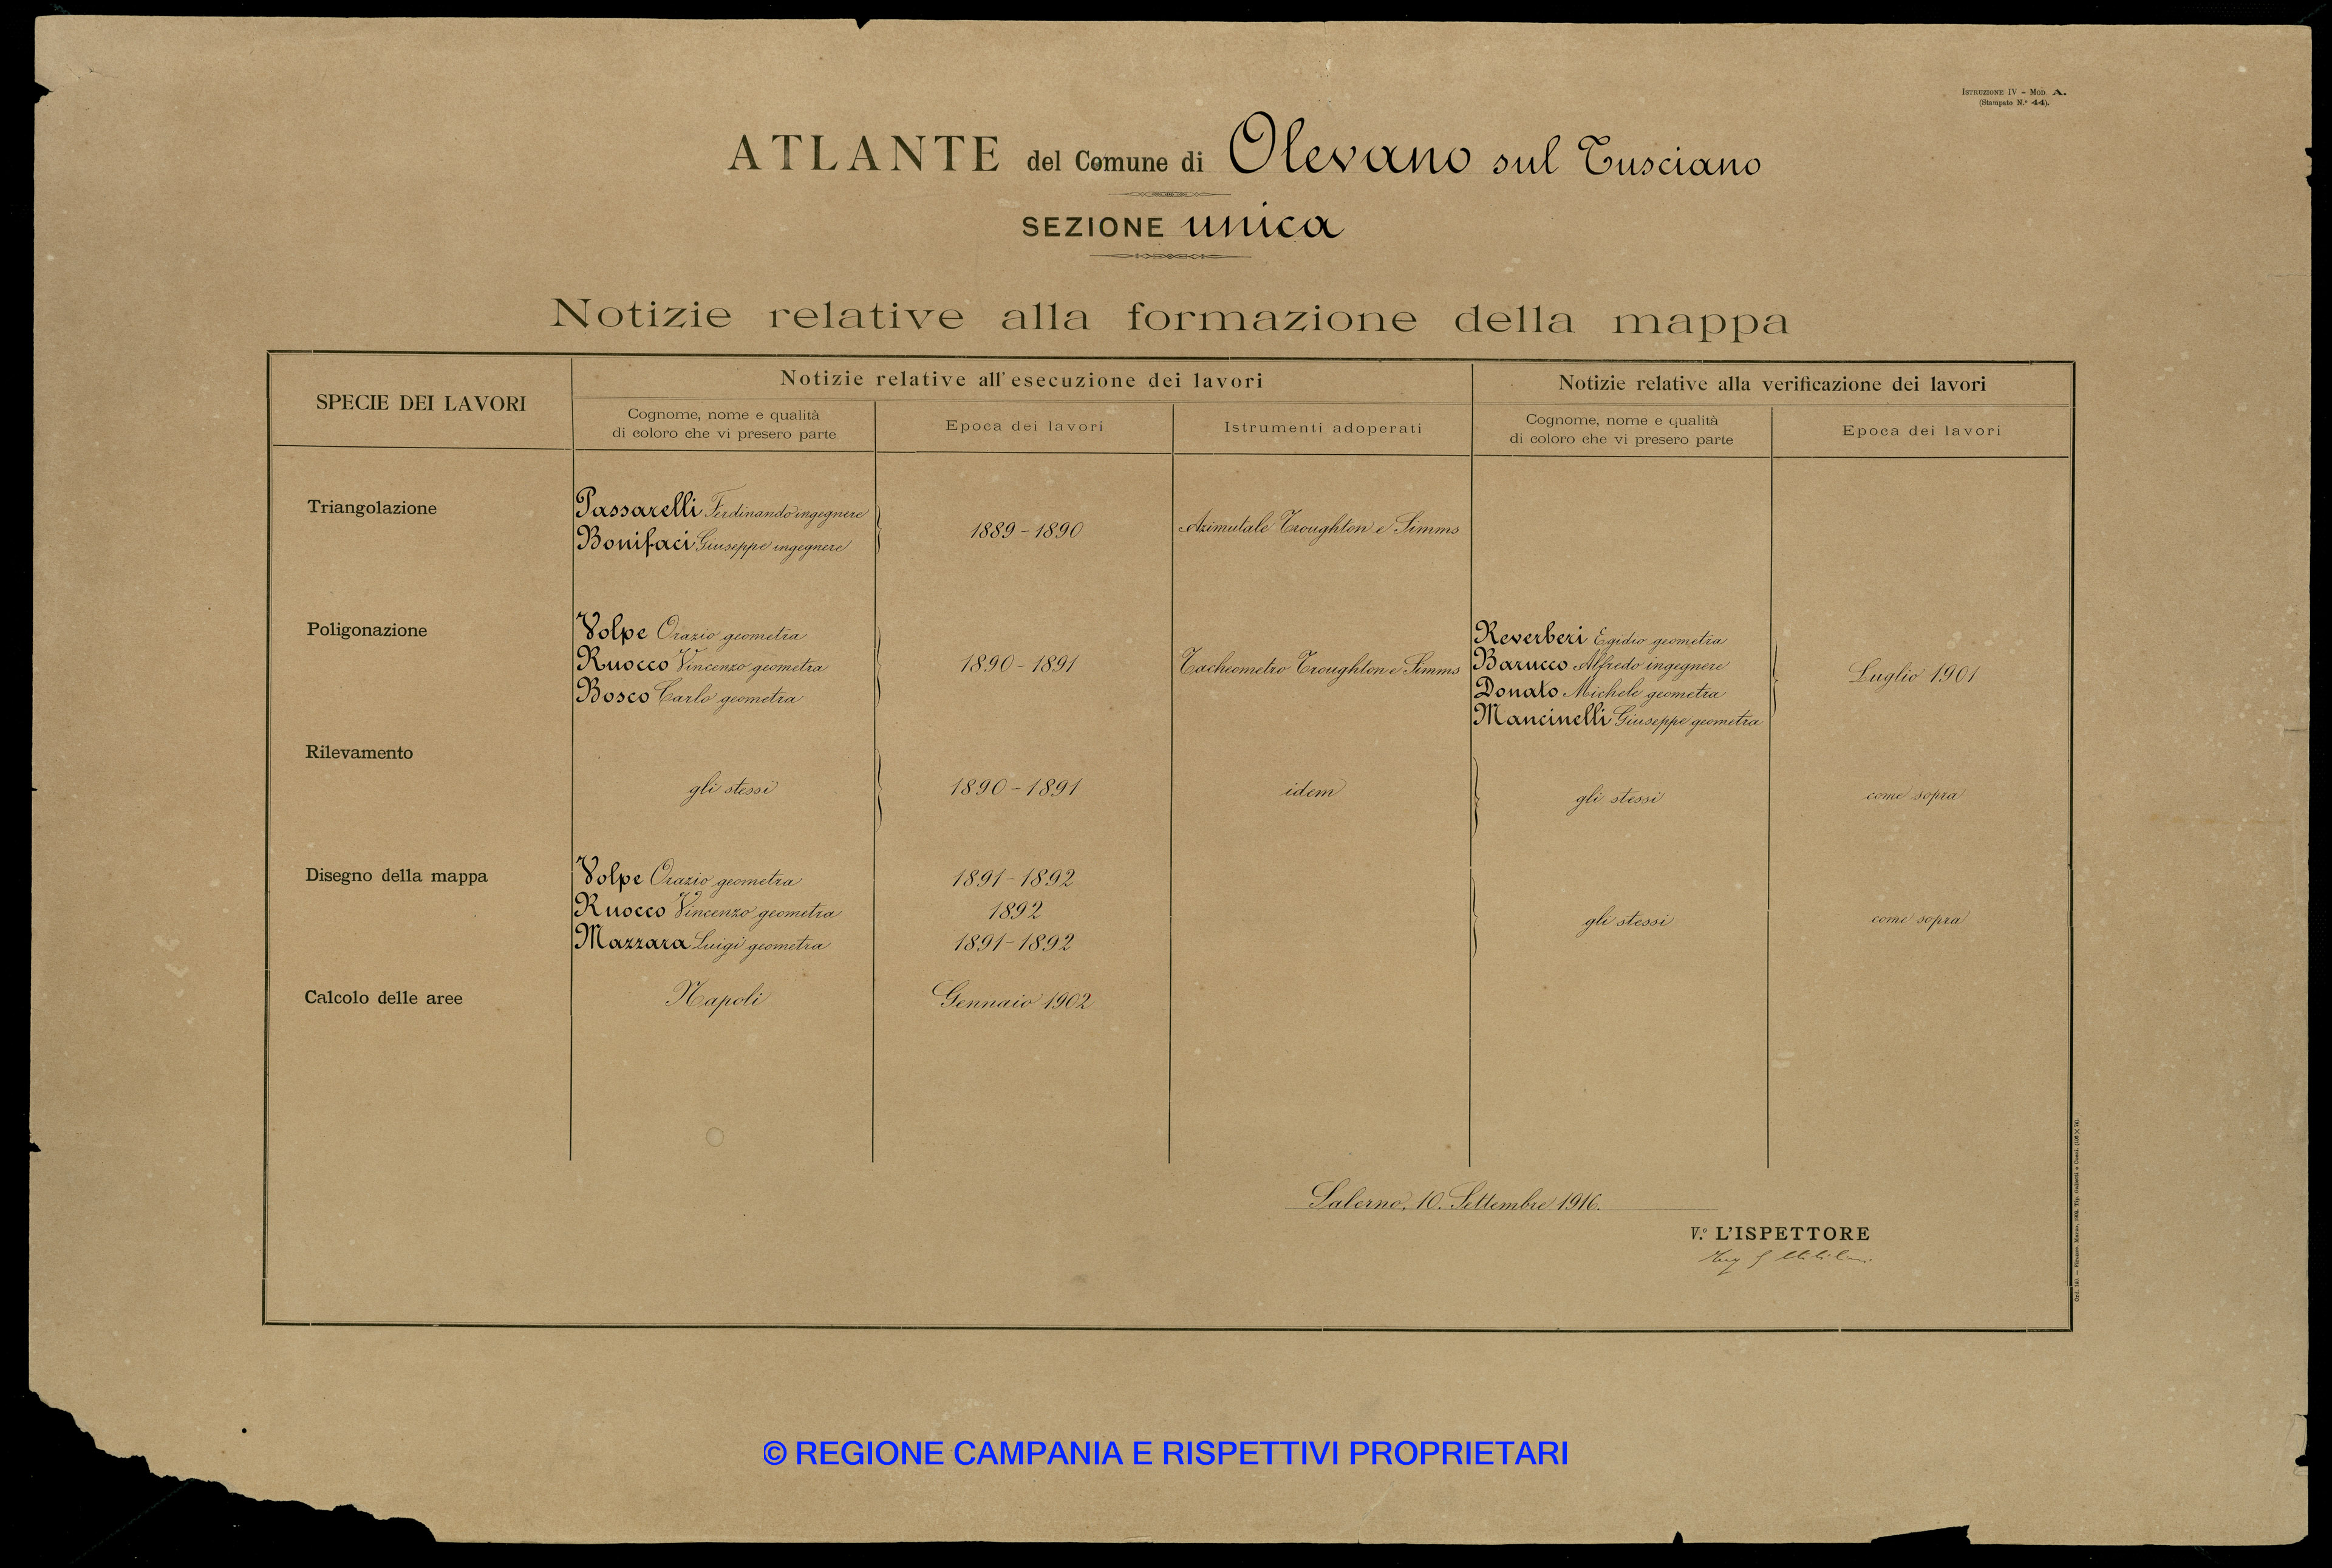 ISTRUZIONE IV - MOD. A.
(Stampato N.º 44).
ATLANTE del Comune di Olevano sul Tusciano
SEZIONE unica
Notizie relative alla formazione della mappa
SPECIE DEI LAVORI
Notizie relative all'esecuzione dei lavori
Notizie relative alla verificazione dei lavori
Cognome, nome e qualità
di coloro che vi presero parte
Epoca dei lavori
Istrumenti adoperati
Cognome, nome e qualità
di coloro che vi presero parte
Epoca dei lavori
Triangolazione
Passarelli Ferdinando ingegnere
Bonifaci Giuseppe ingegnere
1889 - 1890
Azimutale Troughton e Simms
Poligonazione
Volpe Orazio geometra
Ruocco Vincenzo geometra
Bosco Carlo geometra
1890 - 1891
Tacheometro Troughton e Simms
Reverberi Egidio geometra
Barucco Alfredo ingegnere
Donato Michele geometra
Mancinelli Giuseppe geometra
Luglio 1901
Rilevamento
gli stessi
1890 - 1891
idem
gli stessi
come sopra
Disegno della mappa
Volpe Orazio geometra
Ruocco Vincenzo geometra
Mazzara Luigi geometra
1891 - 1892
1892
1891 - 1892
gli stessi
come sopra
Calcolo delle aree
Napoli
Gennaio 1902
Salerno, 10. Settembre 1916.
V.º L'ISPETTORE
© REGIONE CAMPANIA E RISPETTIVI PROPRIETARI